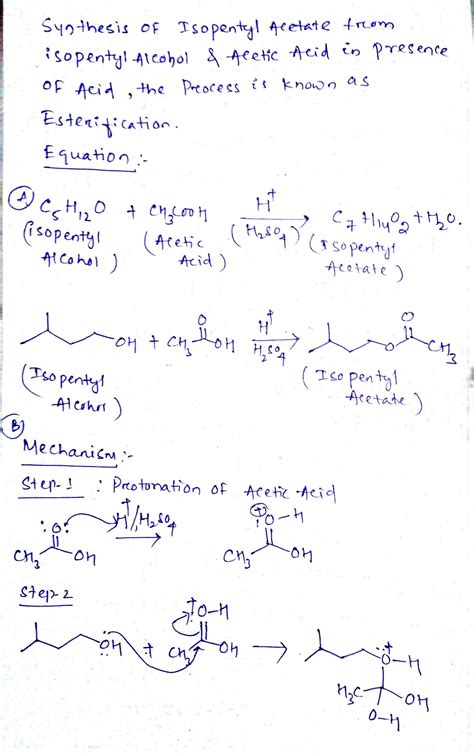 Synthesis of Isopentyl Acetate from
isopentyl Alcohol & Acetic Acid in presence
of Acid, the Process is known as
Esterification.
Equation :-
A) C₅H₁₂O + CH₃COOH H⁺ (H₂SO₄) → C₇H₁₄O₂ + H₂O.
(isopentyl Alcohol) (Acetic Acid) (Isopentyl Acetate)
OH + CH₃ O OH H⁺ H₂SO₄ → O O CH₃
(Isopentyl Alcohol) (Isopentyl Acetate)
B)
Mechanism :-
Step-1 : Protonation of Acetic Acid
:O: H⁺/H₂SO₄ (+) :O-H
CH₃ OH → CH₃ OH
Step-2
⁺:O-H
:OH + CH₃ OH → :O⁺-H
H₃C OH
O-H